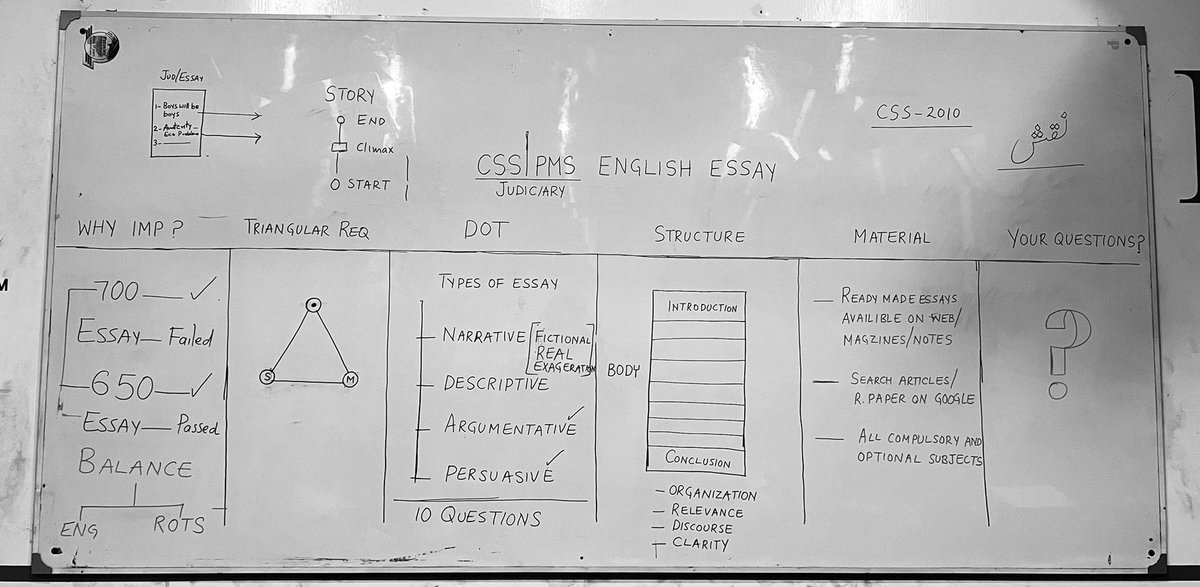 JUD/ESSAY
1- Boys will be
boys
2-
3-
STORY
END
Climax
START
CSS|PMS ENGLISH ESSAY
JUDICIARY
CSS-2010
نقش
WHY IMP?
700 — ✓
ESSAY — Failed
650 — ✓
ESSAY — Passed
BALANCE
ENG ROTS
TRIANGULAR REQ
S M
DOT
TYPES OF ESSAY
NARRATIVE [FICTIONAL
REAL
EXAGERATION]
DESCRIPTIVE
ARGUMENTATIVE ✓
PERSUASIVE ✓
10 QUESTIONS
STRUCTURE
INTRODUCTION
BODY
CONCLUSION
— ORGANIZATION
— RELEVANCE
— DISCOURSE
— CLARITY
MATERIAL
— READY MADE ESSAYS
AVAILIBLE ON WEB/
MAGZINES/NOTES
— SEARCH ARTICLES/
R. PAPER ON GOOGLE
— ALL COMPULSORY AND
OPTIONAL SUBJECTS
YOUR QUESTIONS?
?